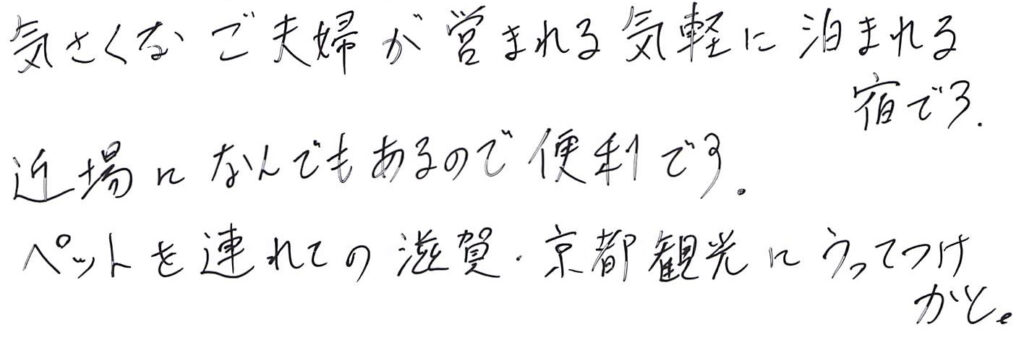 気さくな ご夫婦が営まれる気軽に泊まれる
宿です.
近場になんでもあるので便利です.
ペットを連れての滋賀・京都観光にうってつけ
かと。